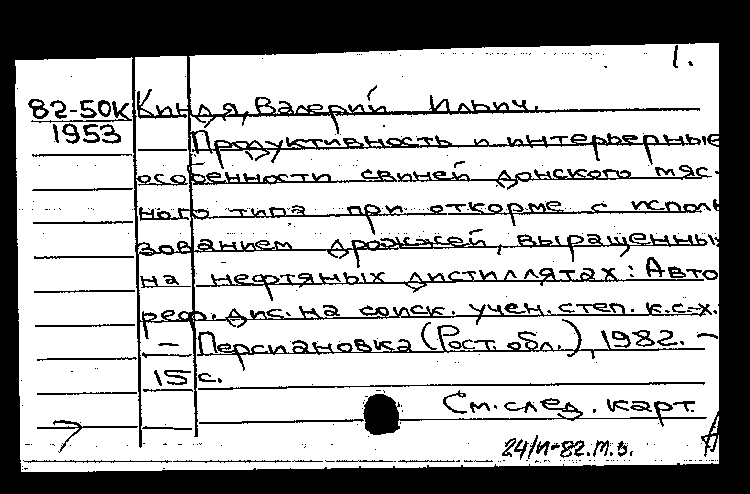 1.
82-50к Киндя, Валерий Ильич.
1953 Продуктивность и интерьерные
особенности свиней донского мяс-
ного типа при откорме с исполь
зованием дрожжей, выращенных
на нефтяных дистиллятах: Авто
реф. дис. на соиск. учен. степ. к.с.-х.
– Персиановка (Рост. обл.), 1982. –
15 с.
См. след. карт.
82.М.В.